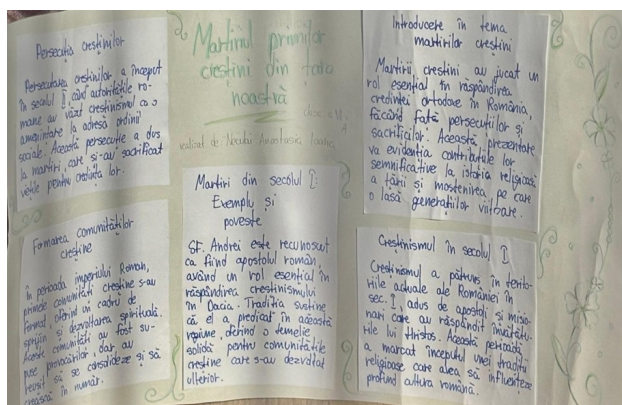 Persecuția creștinilor
Persecutarea creștinilor a început
în secolul I, când autoritățile ro-
mane au văzut creștinismul ca o
amenințare la adresa ordinii
sociale. Această persecuție a dus
la martiri, care și-au sacrificat
viețile pentru credința lor.
Formarea comunităților
creștine
În perioada imperiului Roman,
primele comunități creștine s-au
format, oferind un cadru de
sprijin și dezvoltarea spirituală.
Aceste comunități au fost su-
puse provocărilor, dar au
reușit să se consolideze și să
crească în număr.
Martiriul primilor
creștini din țara
noastră
realizat de Anastasia
Martiri din secolul I:
Exemplu și
poveste
SF. Andrei este recunoscut
ca fiind apostolul român,
având un rol esențial în
răspândirea creștinismului
în Dacia. Tradiția susține
că el a predicat în această
regiune, oferind o temelie
solidă pentru comunitățile
creștine care s-au dezvoltat
ulterior.
Introducere în tema
martirilor creștini
Martirii creștini au jucat un
rol esențial în răspândirea
credinței ortodoxe în România,
făcând față persecuțiilor și
sacrificiilor. Această prezentare
va evidenția contribuțiile lor
semnificative la istoria religioasă
a țării și moștenirea pe care
o lasă generațiilor viitoare.
Creștinismul în secolul I
Creștinismul a pătruns în terito-
riile actuale ale României în
sec. I, adus de apostoli și misio-
nari care au răspândit învățătu-
rile lui Hristos. Această perioadă
a marcat începutul unei tradiții
religioase care alea să influențeze
profund cultura română.